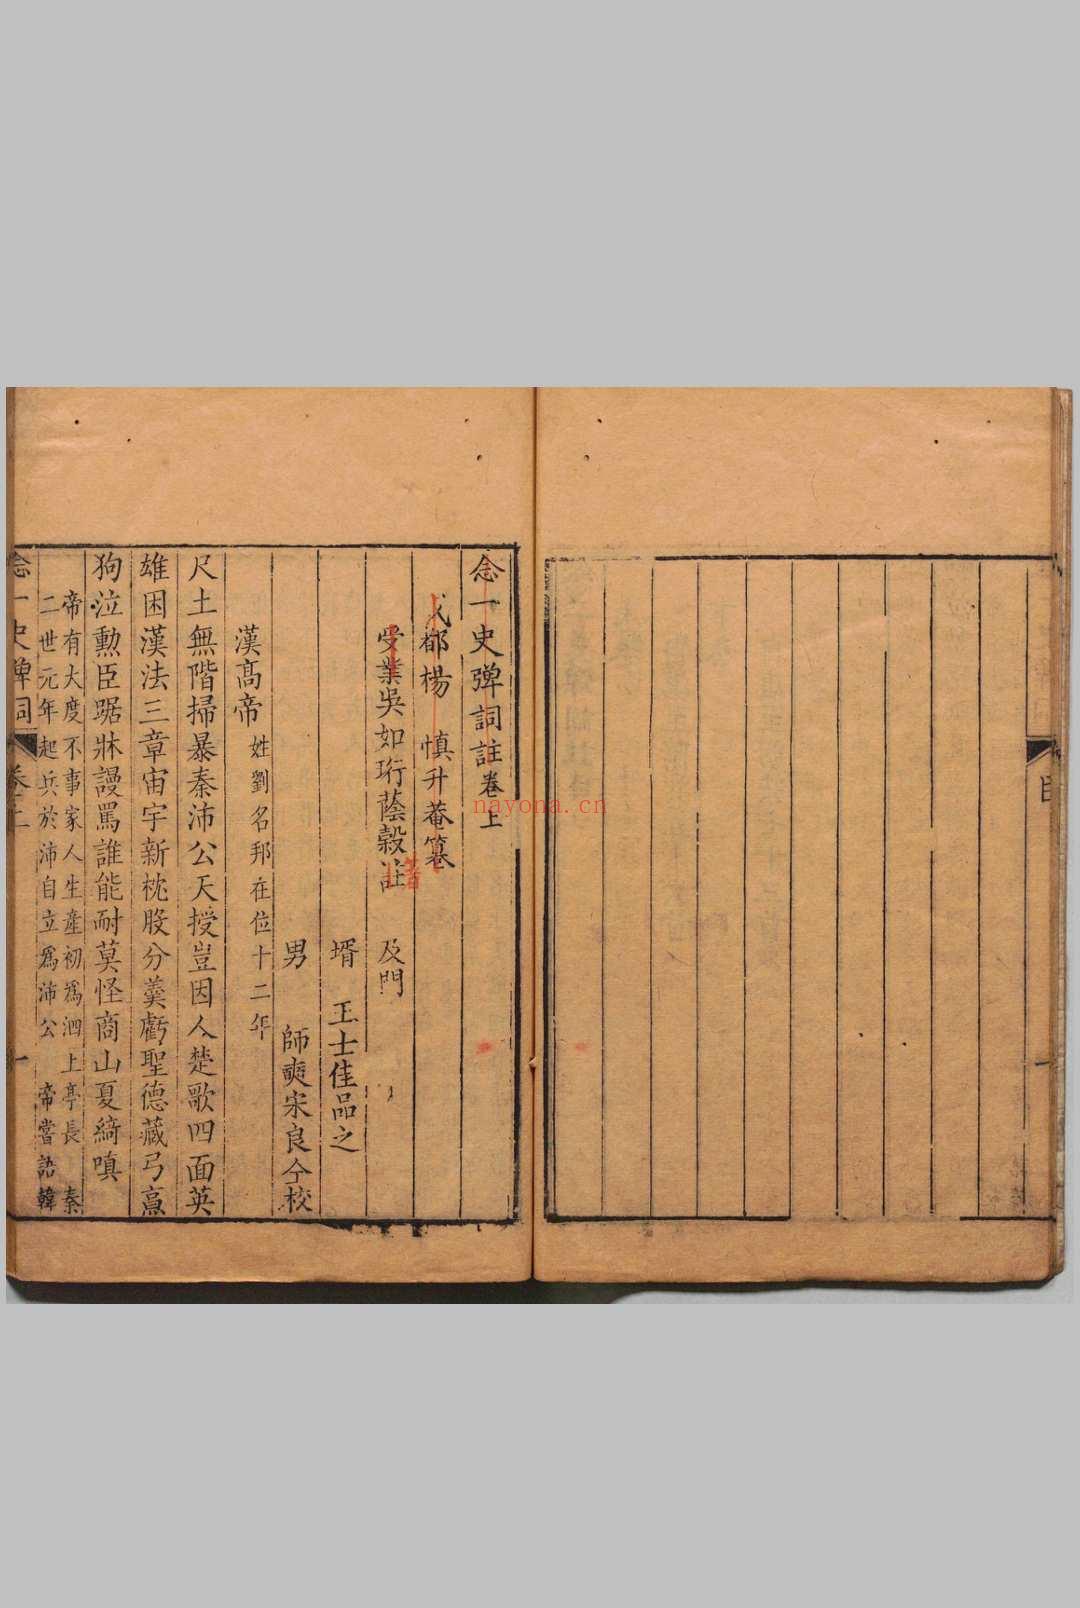 念一史彈詞註卷上
成都楊 慎升菴纂
受業吳如珩蔭穀註 及門
壻 王士佳品之
男 師奭宋良仝校
漢高帝 姓劉名邦在位十二年
尺土無階掃暴秦沛公天授豈因人楚歌四面英
雄困漢法三章宙宇新枕股分羹虧聖德藏弓烹
狗泣勳臣踞牀謾罵誰能耐莫怪商山夏綺嗔
帝有大度不事家人生產初爲泗上亭長 秦
二世元年起兵於沛自立爲沛公 帝嘗語韓
念一史彈詞 卷上 一
目 一
nayona.cn